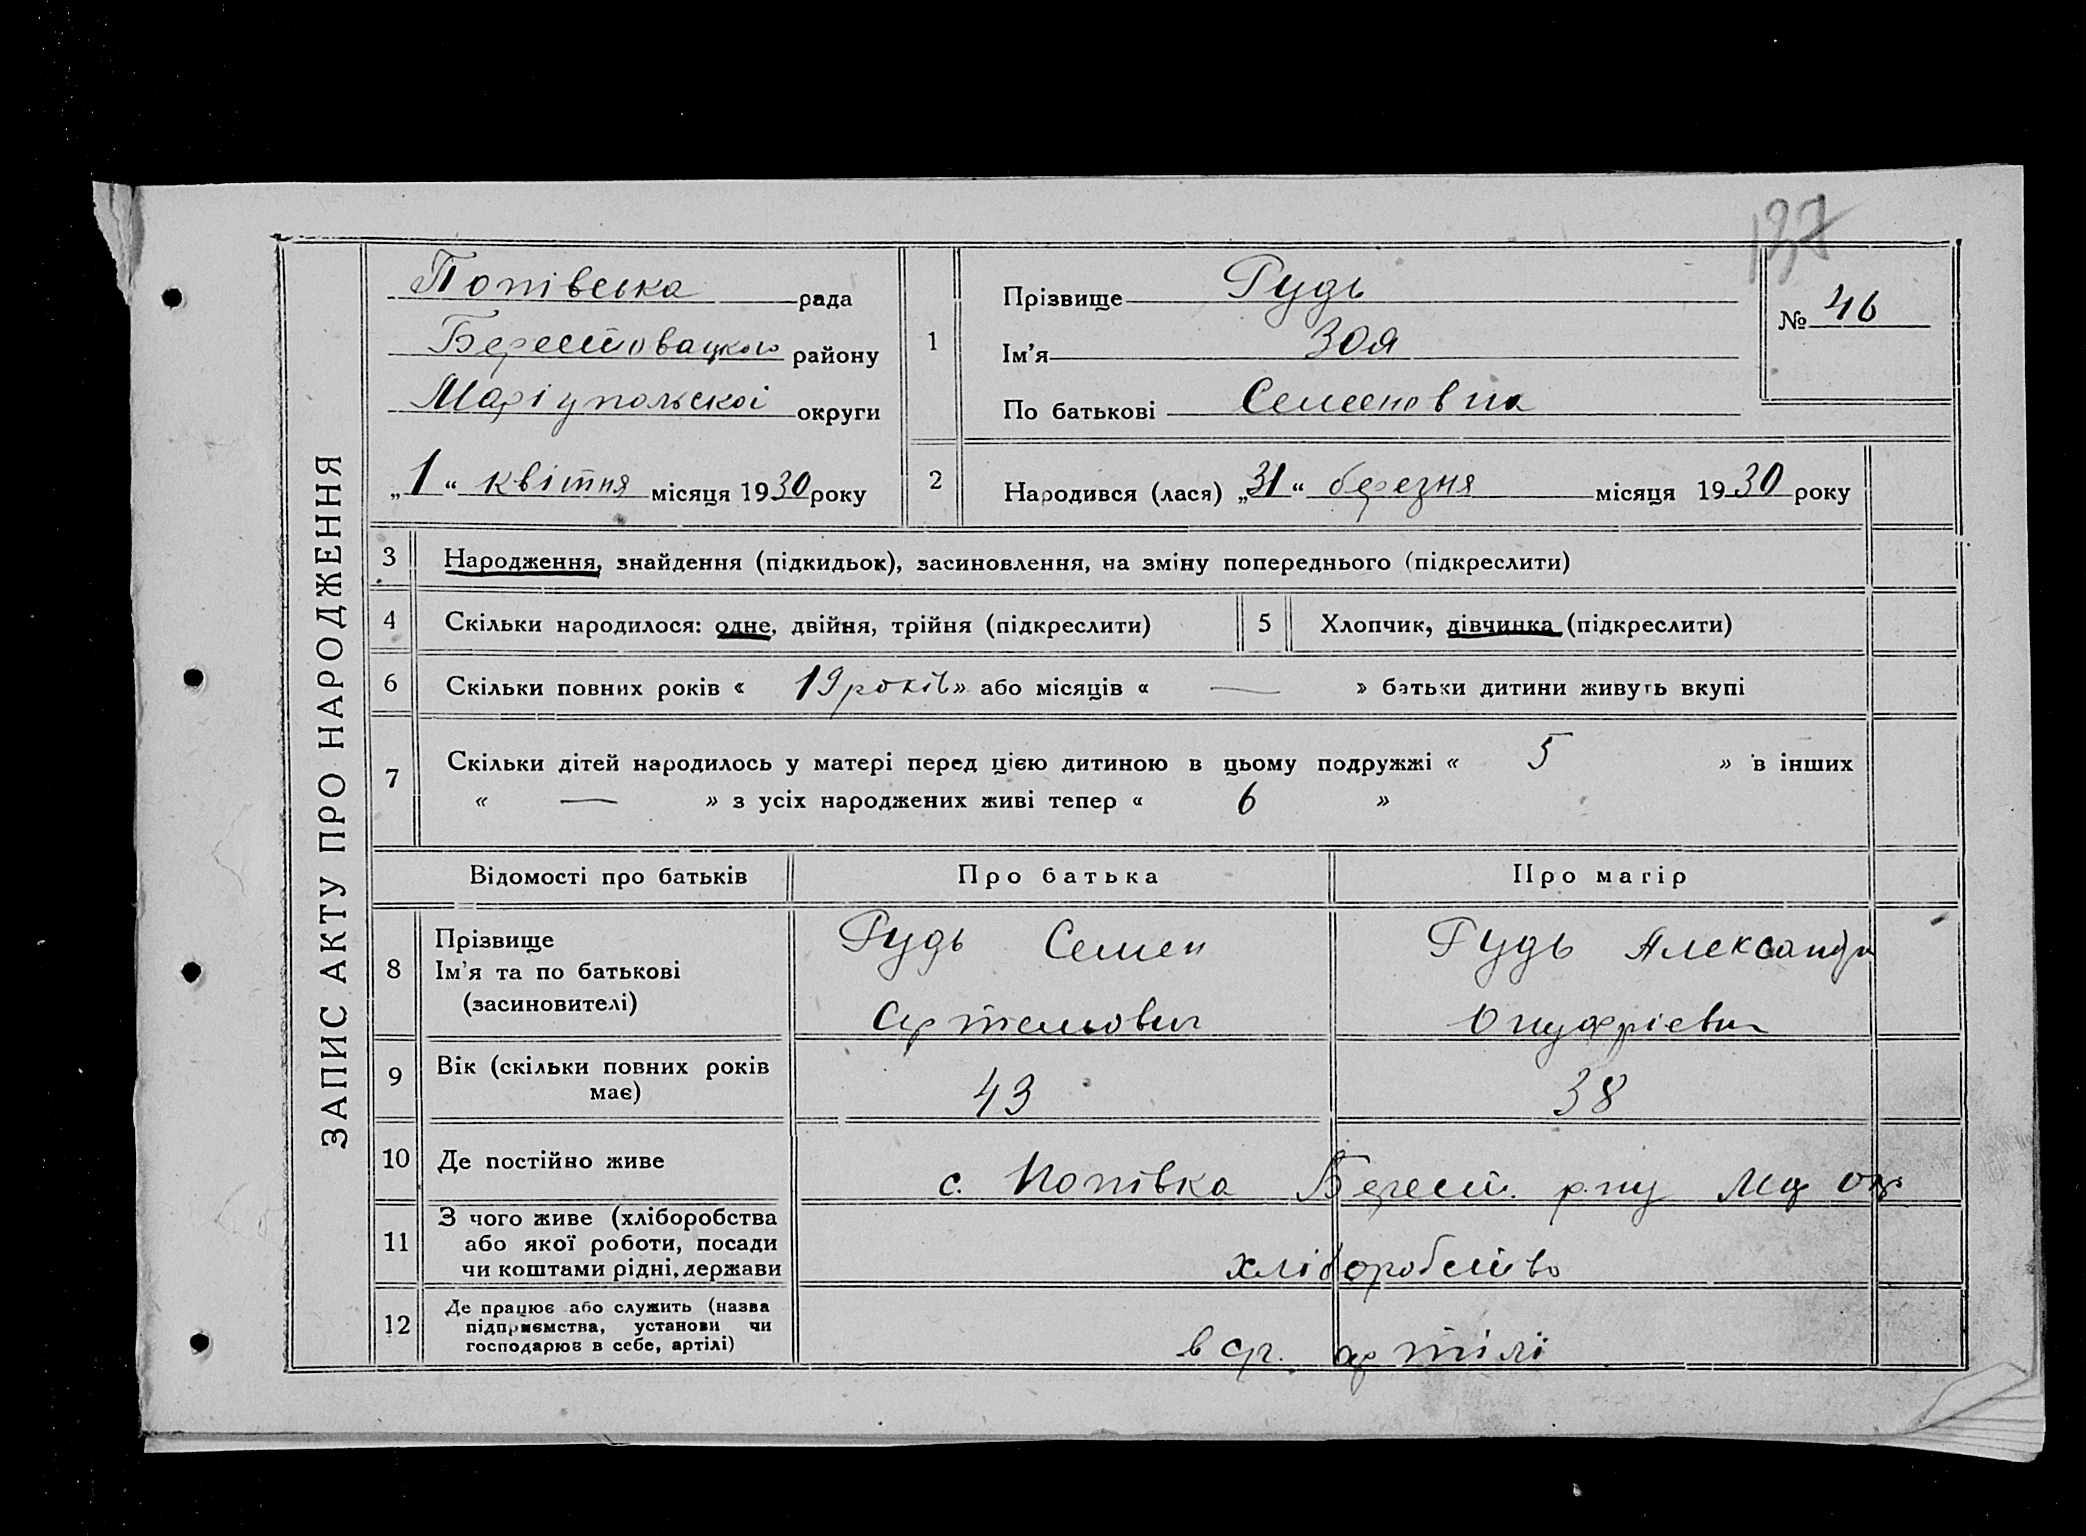 137
ЗАПИС АКТУ ПРО НАРОДЖЕННЯ
Попівська рада
Берестовацького району
Маріупольскоі округи
„1“ квітня місяця 1930 року
1
Прізвище Рудь
Ім'я Зоя
По батькові Семеновна
№ 46
2 Народився (лася) „31“ березня місяця 1930 року
3 Народження, знайдення (підкидьок), засиновлення, на зміну попереднього (підкреслити)
4 Скільки народилося: одне, двійня, трійня (підкреслити) 5 Хлопчик, дівчинка (підкреслити)
6 Скільки повних років « 19 років » або місяців « — » батьки дитини живуть вкупі
7 Скільки дітей народилось у матері перед цією дитиною в цьому подружжі « 5 » в інших
« — » з усіх народжених живі тепер « 6 »
Відомості про батьків Про батька Про матір
8 Прізвище
Ім'я та по батькові
(засиновителі)
Рудь Семен
Артемович
Рудь Александра
Онуфріевна
9 Вік (скільки повних років
має)
43 38
10 Де постійно живе с. Попівка Берест. р-ну Мар окр
11 З чого живе (хліборобства
або якої роботи, посади
чи коштами рідні, держави
хліборобство
12 Де працює або служить (назва
підприємства, установи чи
господарює в себе, артілі)
в артілі